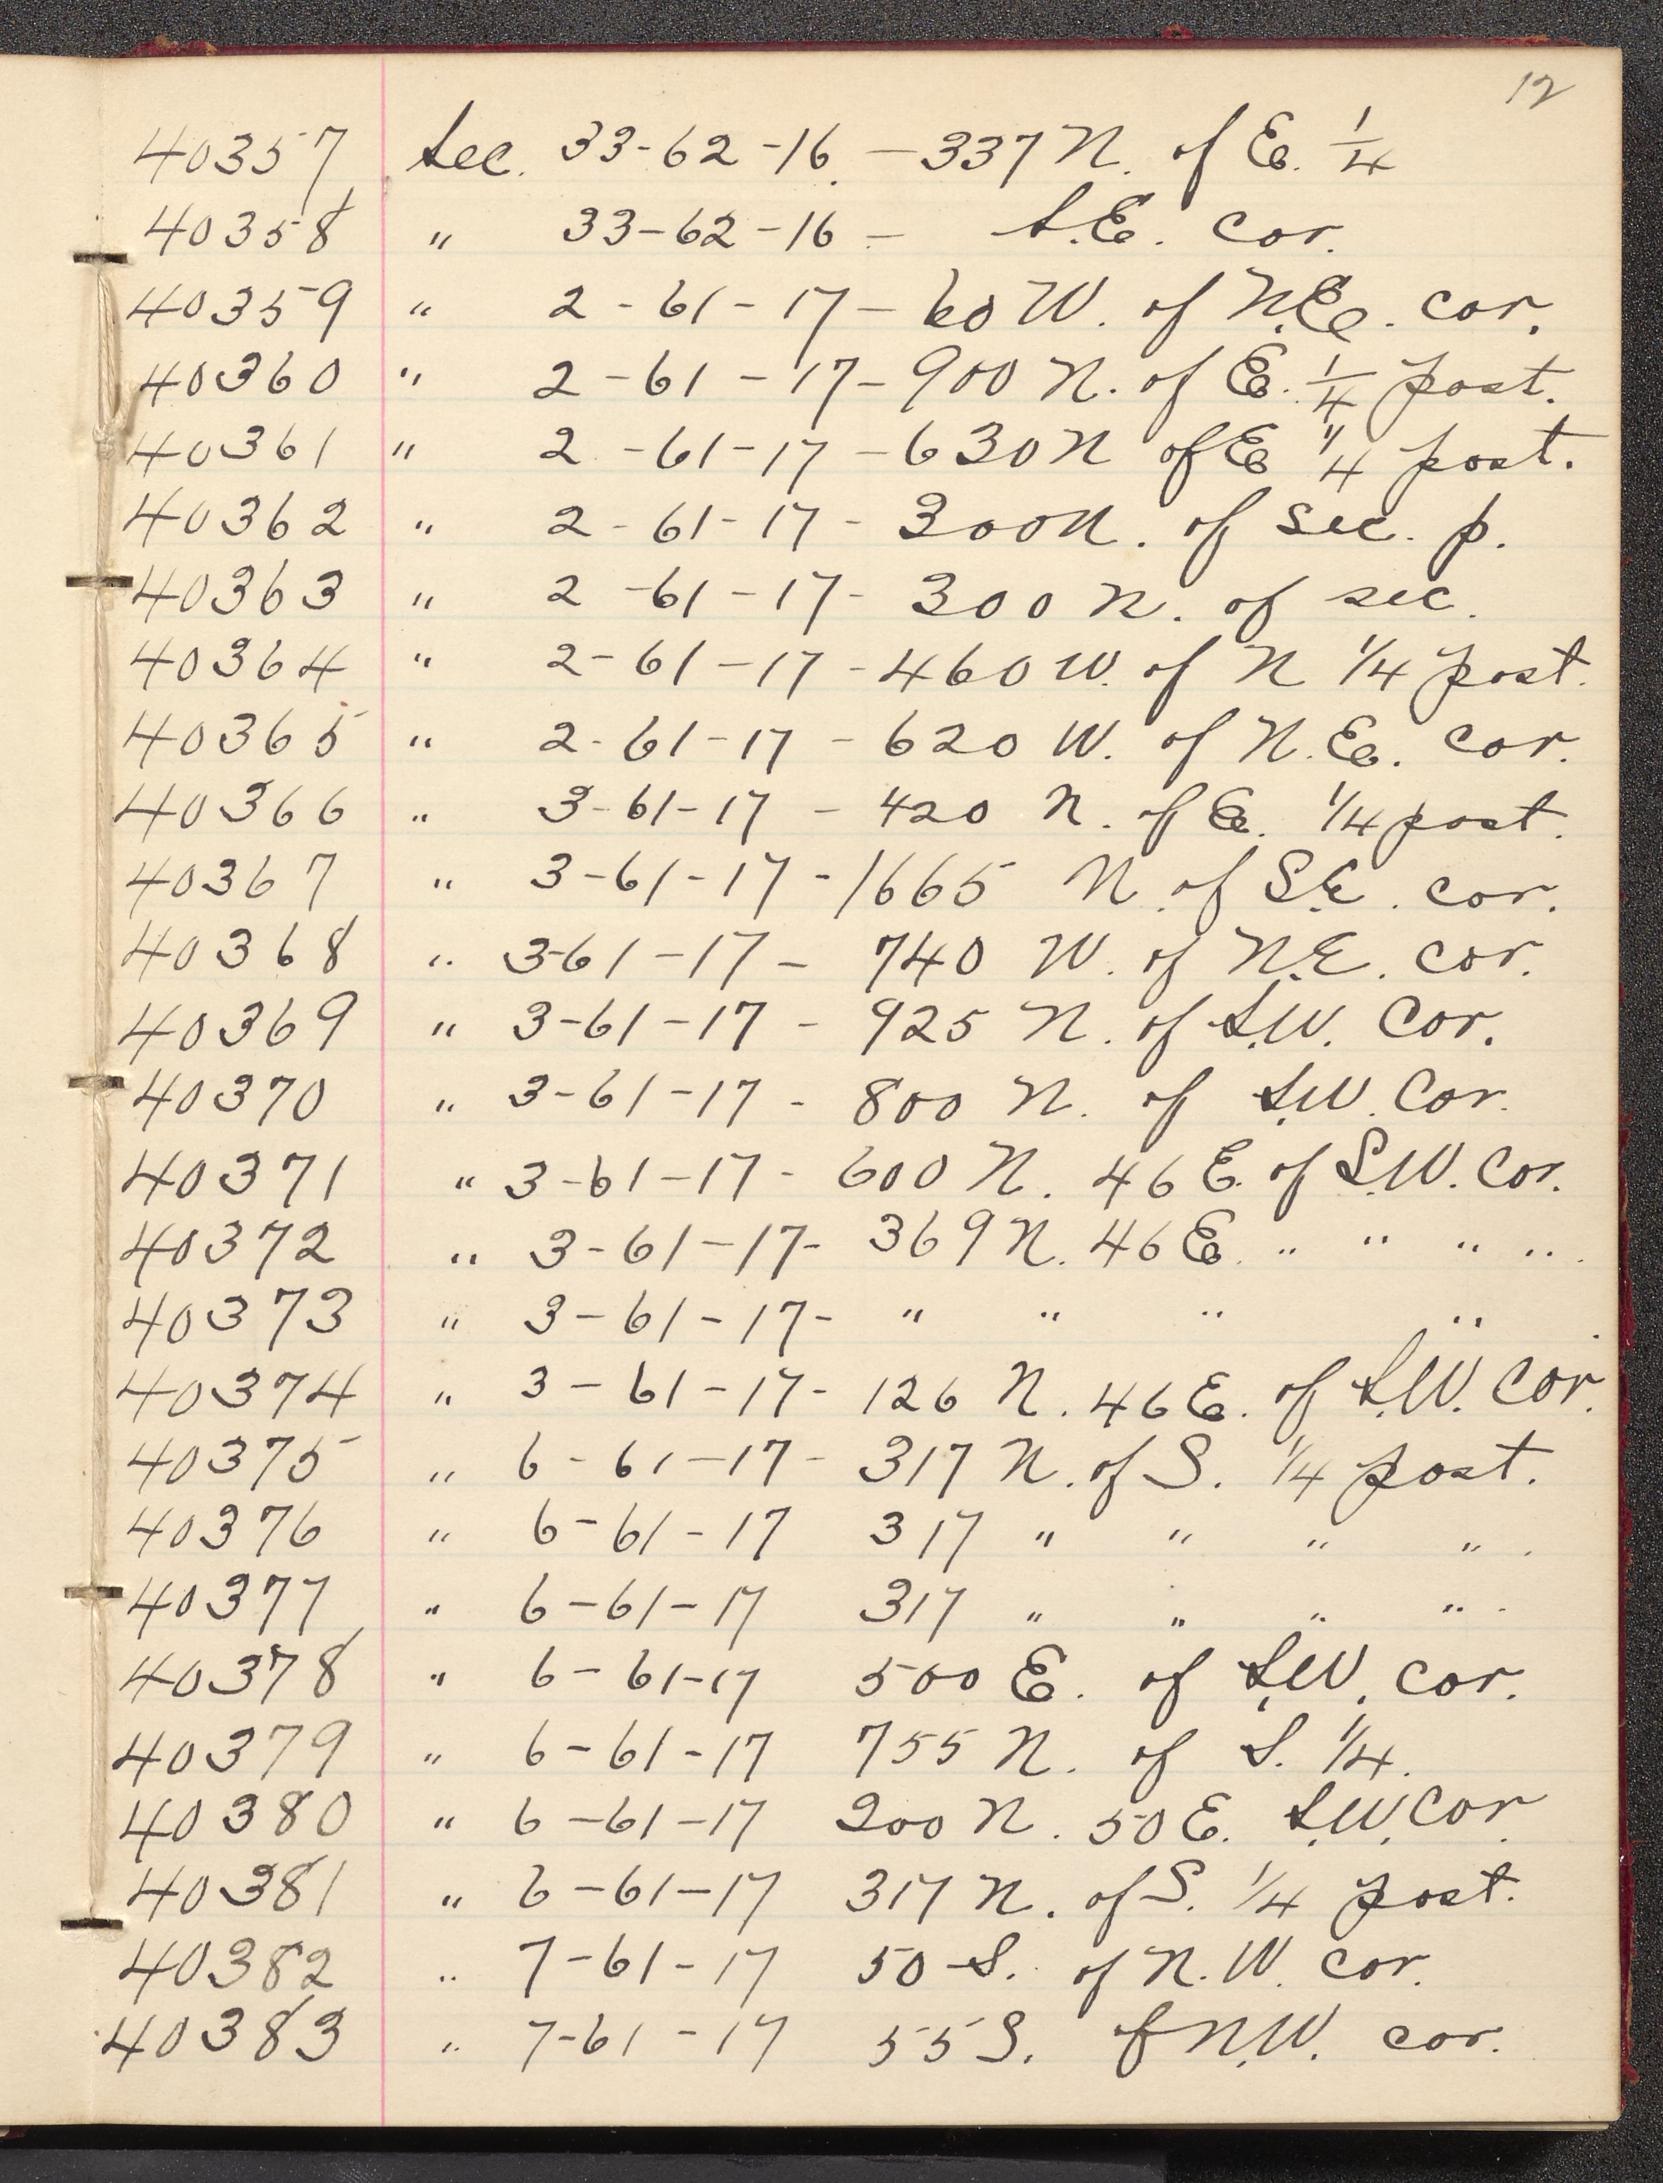 12
40357 Sec. 33-62-16. - 337 N. of E. 1/4
40358 " 33-62-16 - S.E. cor.
40359 " 2-61-17 - 60 W. of N.E. cor.
40360 " 2-61-17 - 900 N. of E. 1/4 post.
40361 " 2-61-17 - 630 N of E 1/4 post.
40362 " 2-61-17 - 300 N. of sec. p.
40363 " 2-61-17 - 300 N. of sec.
40364 " 2-61-17 - 460 W. of N 1/4 post.
40365 " 2-61-17 - 620 W. of N.E. cor.
40366 " 3-61-17 - 420 N. of E. 1/4 post.
40367 " 3-61-17 - 1665 N. of S.E. cor.
40368 " 3-61-17 - 740 W. of N.E. cor.
40369 " 3-61-17 - 925 N. of S.W. Cor.
40370 " 3-61-17 - 800 N. of S.W. Cor.
40371 " 3-61-17 - 600 N. 46 E. of S.W. Cor.
40372 " 3-61-17 - 369 N. 46 E. " " " ".
40373 " 3-61-17 - " " " ".
40374 " 3-61-17 - 126 N. 46 E. of S.W. Cor.
40375 " 6-61-17 - 317 N. of S. 1/4 post.
40376 " 6-61-17 317 " " " ".
40377 " 6-61-17 317 " " " ".
40378 " 6-61-17 500 E. of S.W. cor.
40379 " 6-61-17 755 N. of S. 1/4.
40380 " 6-61-17 200 N. 50 E. S.W. Cor.
40381 " 6-61-17 317 N. of S. 1/4 post.
40382 " 7-61-17 50 S. of N.W. cor.
40383 " 7-61-17 55 S. of N.W. cor.